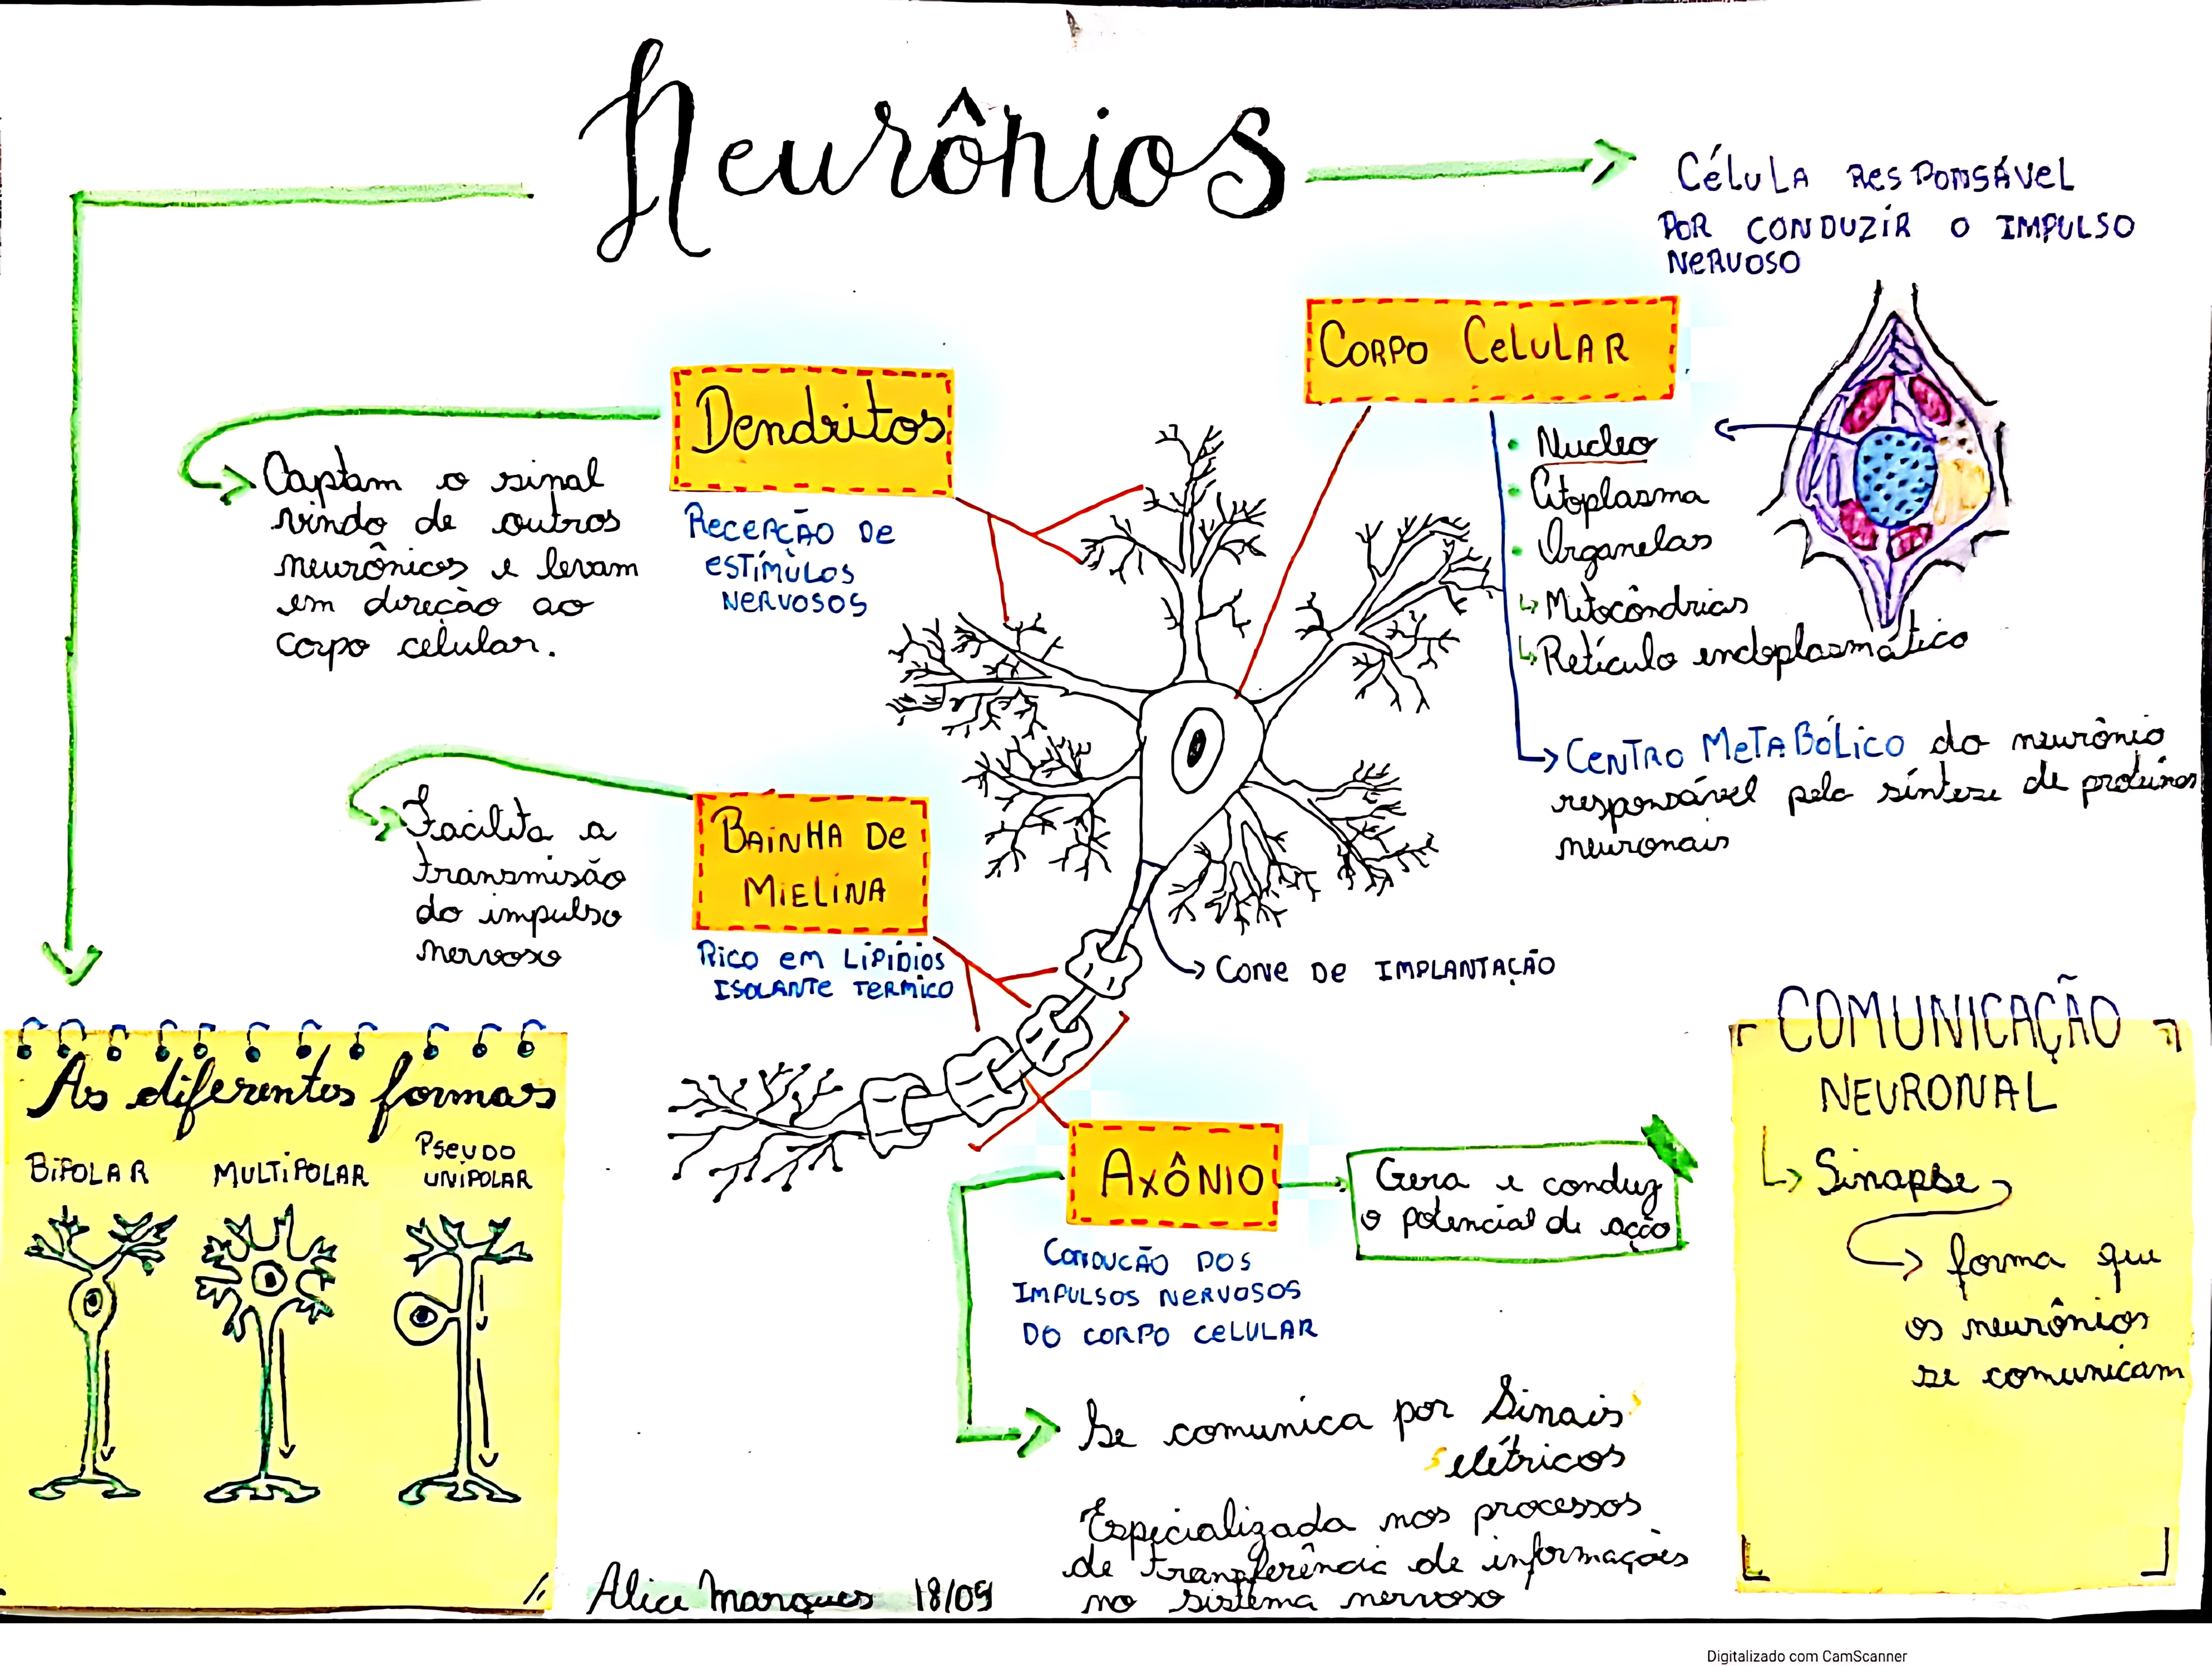 Neurônios
Célula responsável
por conduzir o impulso
nervoso
Dendritos
Captam o sinal
vindo de outros
neurônios e levam
em direção ao
corpo celular.
Recepção de
estímulos
nervosos
Corpo Celular
• Nucleo
• Citoplasma
• Organelas
↳ Mitocôndrias
↳ Retículo endoplasmático
Centro Metabólico do neurônio
responsável pela síntese de proteínas
neuronais
Bainha de
Mielina
Facilita a
transmisão
do impulso
nervoso
Rico em lipídios
isolante termico
Cone de implantação
As diferentes formas
Bipolar
Multipolar
Pseudo
unipolar
Axônio
Gera e conduz
o potencial de ação
Condução dos
impulsos nervosos
do corpo celular
Se comunica por Sinais
elétricos
Especializada nos processos
de transferência de informações
no sistema nervoso
COMUNICAÇÃO
NEURONAL
↳ Sinapse
forma que
os neurônios
se comunicam
Alice Marques 18/09
Digitalizado com CamScanner